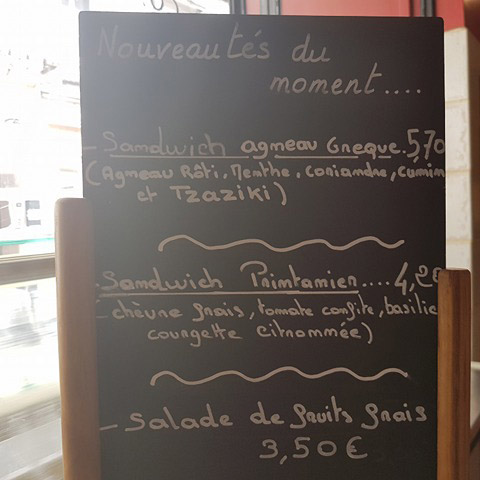 Nouveautés du
moment....
- Sandwich agneau Grecque. 5,70
(Agneau Rôti, Menthe, Coriandre, Cumin
et Tzaziki)
- Sandwich Printanier.... 4,20
(chèvre frais, tomate confite, basilic
courgette citronnée)
- Salade de fruits frais
3,50€